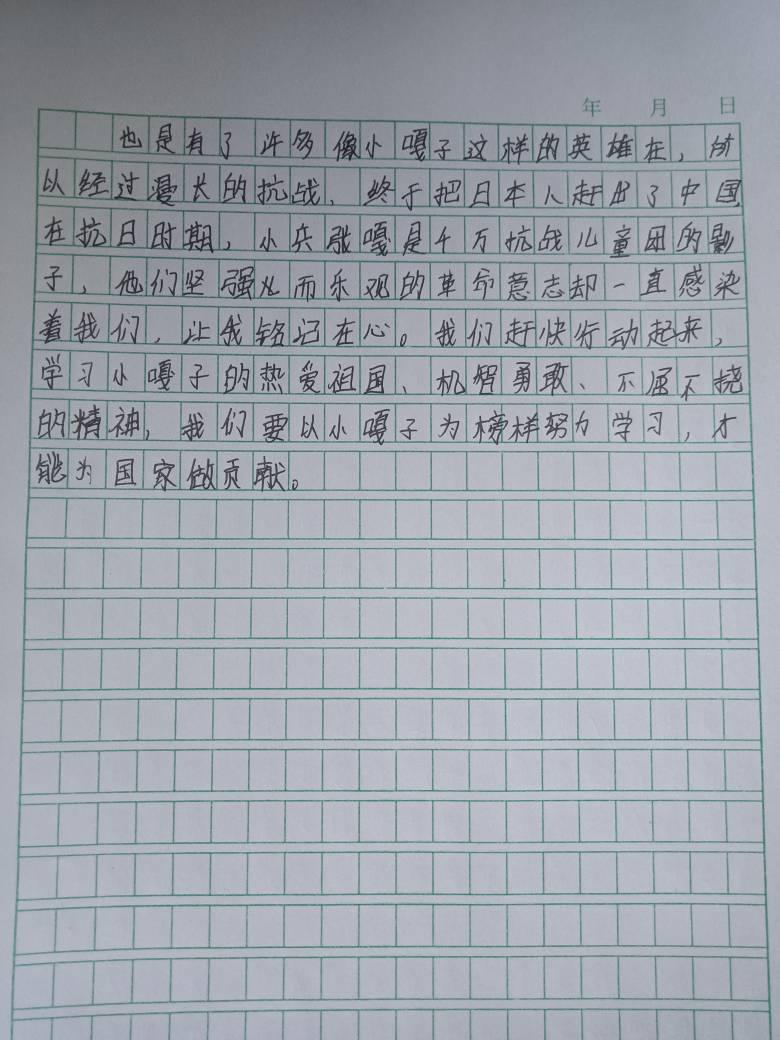 年 月 日
也是有了许多像小嘎子这样的英雄在，所
以经过漫长的抗战，终于把日本人赶出了中国
在抗日时期，小兵张嘎是千万抗战儿童团的影
子，他们坚强火而乐观的革命意志却一直感染
着我们，让我铭记在心。我们赶快行动起来，
学习小嘎子的热爱祖国、机智勇敢、不屈不挠
的精神，我们要以小嘎子为榜样努力学习，才
能为国家做贡献。